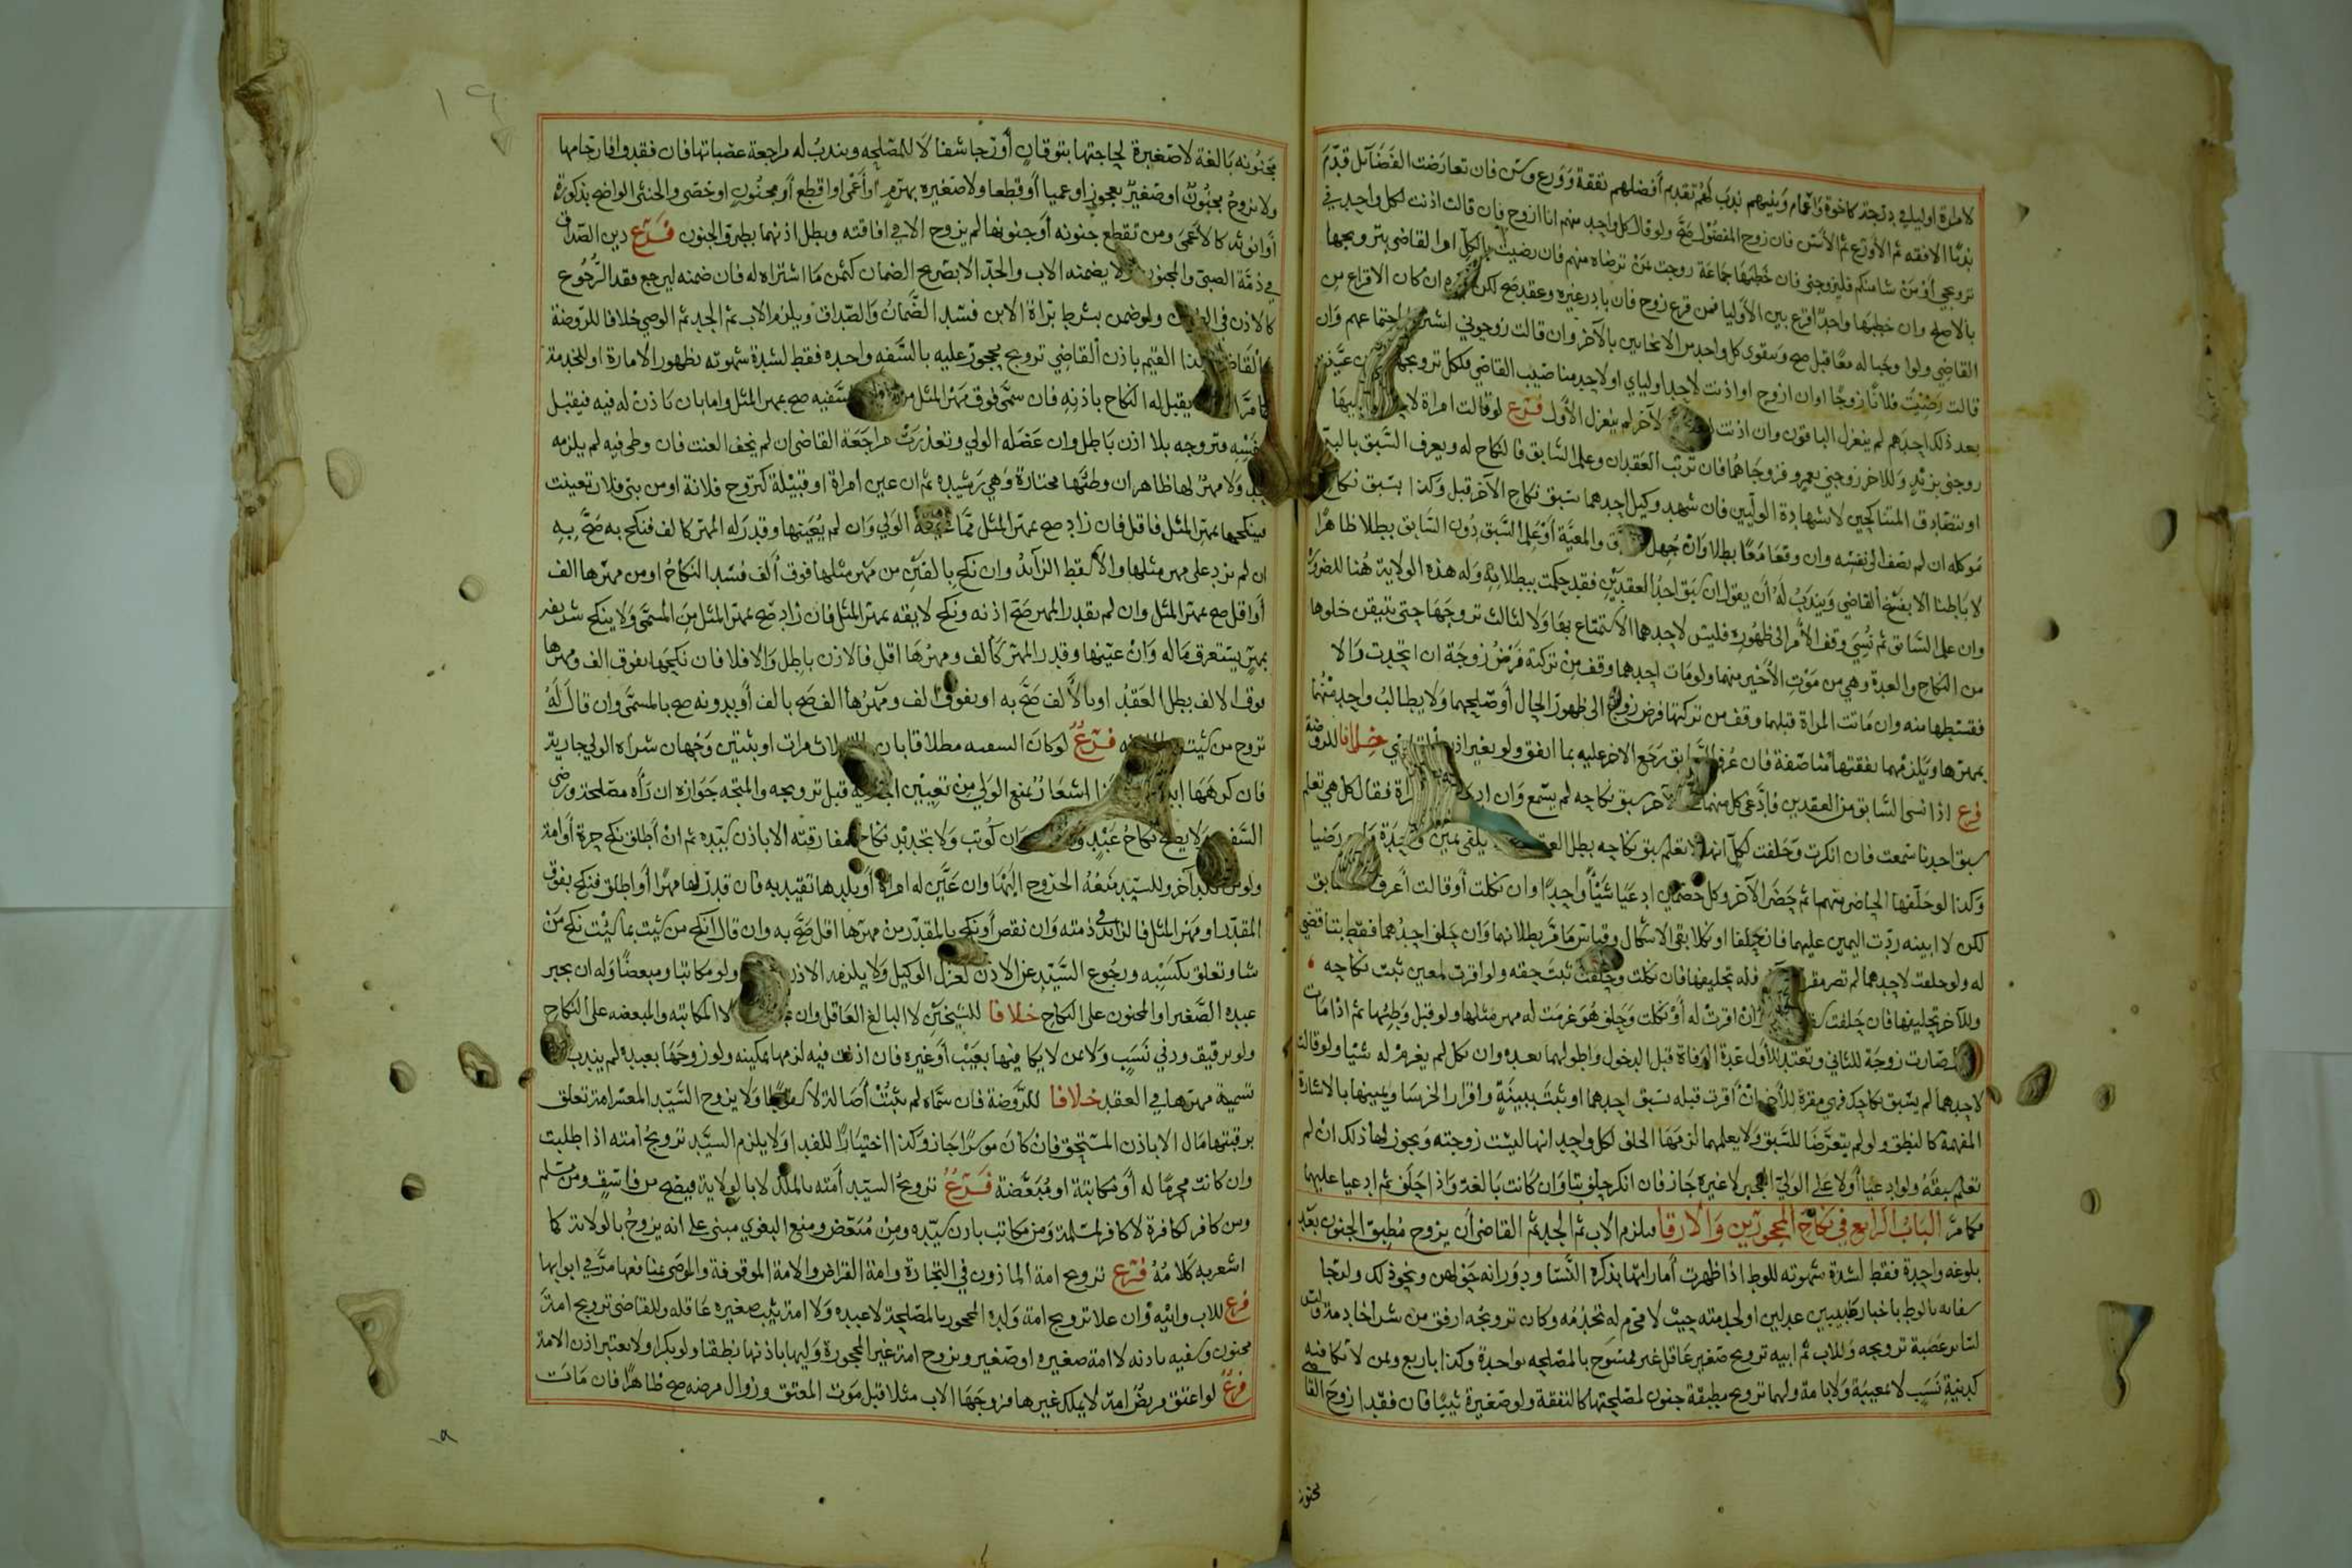 لامراة اوليا في درجة كاخوة واعمام وبنيهم ندب لهم تقديم أفضلهم بفقه وورع وسن فان تعارضت الفضائل قدم
ندبا الافقه ثم الاورع ثم الاسن فان زوج المفضول صح ولو قال كل واحد منهم انا ازوج فان قالت اذنت لكل واحد في
تزويجي أو من شا منكم فليزوجني فان خطبها جماعة زوجت ممن ترضاه منهم فان رضيت بالكل امر القاضي بتزويجها
بالاصلح وان خطبها واحد اقرع بين الأوليا فمن قرع زوج فان بادر غيره وعقد صح لكن ان كان الاقراع من
القاضي ولو اوجبا له معا قبل صح وتقوى كل واحد من الايجابين بالآخر وان قالت زوجوني اشترط اجتماعهم وان
قالت رضيت فلانا زوجا اوان ازوج او اذنت لاحد اوليائي او لاحد مناصيب القاضي فلكل تزويجها عينت
بعد ذلك احدهم لم ينعزل الباقون وان اذنت لآخر لم ينعزل الأول فرع لو قالت امراة
زوجني بزيد وللاخر زوجني بعمرو فزوجاهما فان ترتب العقدان وعلم السابق فالنكاح له ويعرف السبق بالبينة
او بتصادق المتناكحين لا بشهادة الوليين فان شهد وكيل احدهما بسبق نكاح الآخر قبل وكذا بسبق نكاح
موكله ان لم يضف الى نفسه وان وقعا معا بطلا وان جهل والمعية أو علم السبق دون السابق بطلا ظاهرا
لا باطنا الا بفسخ القاضي ويندب له أن يقول ان سبق احد العقدين فقد حكمت ببطلانه وله هذه الولاية هنا للضرورة
وان علم السابق ثم نسي وقف الامر الى ظهوره فليس لاحدهما الاستمتاع بها ولا لثالث تزوجها حتى يتيقن خلوها
من النكاح والعدة وهي من موت الأخير منهما ولو مات احدهما وقف من تركته فرض زوجة ان اتحدت والا
فقسطها منه وان ماتت المراة قبلهما وقف من تركتها فرض زوج الى ظهور الحال أو صلحهما ولا يطالب واحد منهما
بمهرها ويلزمهما نفقتها مناصفة فان عرف السابق رجع الاخر عليه بما انفق ولو بغير اذن خلافا للروضة
فرع اذا نسي السابق من العقدين فادعى كل منهما الآخر سبق نكاحه لم يسمع وان المراة فقال كل هي تعلم
سبق احدنا سمعت فان انكرت وحلفت لكل انها لا تعلم سبق نكاحه بطل يكفي يمين واحدة رضيا
وكذا لو حلفها الحاضر منهما ثم حضر الآخر وكل خصمين ادعيا شيئا واحدا وان نكلت أو قالت أعرف السابق
لكن لا ابينه ردت اليمين عليهما فان حلفا او نكلا بقي الاشكال وقياس ما مر بطلانهما وان حلف احدهما فقط بتنا قضي
له ولو حلفت لاحدهما لم تصر مقرة فله تحليفها فان نكلت وحلف ثبت حقه ولو اقرت لمعين ثبت نكاحه
وللآخر تحليفها فان حلفت وان اقرت له أو نكلت وحلف هو غرمت له مهر مثلها ولو قبل وطئها ثم اذا مات
صارت زوجة للثاني وتعتد للأول عدة الوفاة قبل الدخول واطولهما بعده وان نكل لم يغرم له شيا ولو قالت
لاحدهما لم يسبق نكاحك فهي مقرة للآخر ان أقرت قبله بسبق احدهما او ثبت ببينة واقرار الخرسا ويمينها بالاشارة
المفهمة كالنطق ولو لم يتعرضا للسبق ولا يعلمهما لزمها الحلف لكل واحد انها ليست زوجته ويجوز لها ذلك ان لم
تعلم سبقه ولو ادعيا أولا على الولي المجبر لا غيره جاز فان انكر حلف بتا وان كانت بالغة واذا حلف ثم ادعيا عليها
فكما مر الباب الرابع في نكاح المحجورين والارقا يلزم الاب ثم الجد ثم القاضي أن يزوج مطبق الجنون بعد
بلوغه واحدة فقط لشدة شهوته للوطء اذا ظهرت أماراتها بذكره النسا ودورانه حولهن ونحو ذلك ولرجا
شفائه بالوطء باخبار طبيبين عدلين او لخدمته حيث لا محرم له تخدمه وكان تزويجه ارفق من شراخادمة وليس
لسائر عصبة تزويجه وللاب ثم ابيه تزويج صغير عاقل غير ممسوح بالمصلحه بواحدة وكذا باربع وبمن لا تكافئه
كدنية نسب لا معيبة ولا بامة ولهما تزويج مطبقة جنون لمصلحتها كالنفقة ولو صغيرة ثيبا فان فقدا زوج القاضي
مجنونة
١٩
مجنونه بالغة لا صغيرة لحاجتها بتوقان أو رجا شفا لا للمصلحه ويندب له مراجعة عصباتها فان فقدوا فارحامها
ولا يزوج مجنون او صغير بعجوز او عميا أو قطعا ولا صغيره بهرم او أعمى او اقطع أو مجنون او خصي والخنثى الواضح بذكورة
أو انوثه كالأعمى ومن تقطع جنونه أو جنونها لم يزوج الا في افاقته وبطل اذنهما بطرو الجنون فرع دين الصداق
في ذمة الصبي والمجنون ولا يضمنه الاب والجد الا بصريح الضمان كثمن ما اشتراه له فان ضمنه ليرجع فقد الرجوع
كالاذن في ولو ضمن بشرط براة الابن فسد الضمان والصداق ويلزم الاب ثم الجد ثم الوصي خلافا للروضة
القيم باذن القاضي تزويج محجور عليه بالسفه واحده فقط لشدة شهوته بظهور الامارة او للخدمة
يقبل له النكاح باذنه فان سمى فوق مهر المثل السفيه صح بمهر المثل واما بان ياذن له فيه فيقبل
بنفسه وتزوجه بلا اذن باطل وان عضله الولي وتعذرت مراجعة القاضي ان لم يخف العنت فان وطى فيه لم يلزمه
حد ولا مهر لها ظاهرا ان وطئها مختارة وهي رشيده ثم ان عين امراة او قبيلة كتزوج فلانة او من بني فلان تعينت
فينكحها بمهر المثل فاقل فان زاد صح بمهر المثل مما الولي وان لم يعينها وقدر له المهر كالف فنكح به صح به
ان لم يزد على مهر مثلها والا سقط الزائد وان نكح بالفين من مهر مثلها فوق ألف فسد النكاح او من مهرها الف
أو اقل صح بمهر المثل وان لم يقدر المهر صح اذنه ونكح لايقه بمهر المثل فان زاد صح بمهر المثل من المسمى ولا ينكح شريفه
بمهر يستغرق ماله وان عينها وقدر المهر كألف ومهرها اقل فالاذن باطل والا فلا فان نكحها بفوق الف ومهرها
فوق الالف بطل العقد او بالألف صح به او بفوق الف ومهرها الف صح بالف أو بدونه صح بالمسمى وان قال له
تزوج من شئت فرع لو كان السفيه مطلاقا بان ثلاث مرات او بثنتين وجهان شراه الولي جارية
فان كرهها اشعار بمنع الولي من تعيين قبل تزويجه والمتجه جوازه ان رآه مصلحة ورضي
السفيه ولا يصح نكاح عبد وان كوتب ولا تجديد نكاح مفارقته الا باذن سيده ثم ان أطلق نكح حرة أو امة
ولو من بلد آخر وللسيد منعه الخروج اليها وان عين له امراة أو بلدها تقيد به فان قدر لها مهرا أو اطلق فنكح بفوق
المقدر او مهر المثل فالزائد في ذمته وان نقص أو نكح بالمقدر من مهرها اقل صح به وان قال انكح من شيت بما شيت نكح من
شا وتعلق بكسبه ورجوع السيد عن الاذن كعزل الوكيل ولا يلزمه الاذن ولو مكاتبا ومبعضا وله ان يجبر
عبده الصغير او المجنون على النكاح خلافا للشيخين لا البالغ العاقل وان لا المكاتبه والمبعضه على النكاح
ولو برقيق ودني نسب ولا بمن لا يكافيها بعيب أو غيره فان اذنت فيه لزمها تمكينه ولو زوجها بعبده لم يندب
تسمية مهرها في العقد خلافا للروضة فان سماه لم يثبت أصالة لا ولا يزوج السيد المعسر امة تعلق
برقبتها مال الا باذن المستحق فان كان موسرا جاز وكذا اختيارا للفدا ولا يلزم السيد تزويج امته اذا طلبت
وان كانت محرما له أو مكاتبة او مبعضة فرع تزويج السيد أمته بالملك لا بالولاية فيصح من فاسق ومن مسلم
ومن كافر لكافرة لا كافر لمسلمة ومن مكاتب باذن سيده ومن مبعض ومنع البغوي مبني على انه يزوج بالولاية كما
اشعر به كلامه فرع تزويج امة الماذون في التجارة وامة القراض والامة الموقوفة والموصى بمنافعها مر في ابوابها
فرع للاب وابيه وان علا تزويج امة ولده المحجور بالمصلحة لا عبده ولا امة ثيب صغيره عاقله وللقاضي تزويج امة
مجنون وسفيه باذنه لا امة صغيره او صغير ويزوج امة غير المحجورة وليها باذنها نطقا ولو بكرا ولا يعتبر اذن الامة
فرع لو اعتق مريض امة لا يملك غيرها فزوجها الاب مثلا قبل موت المعتق وزوال مرضه صح ظاهرا فان مات